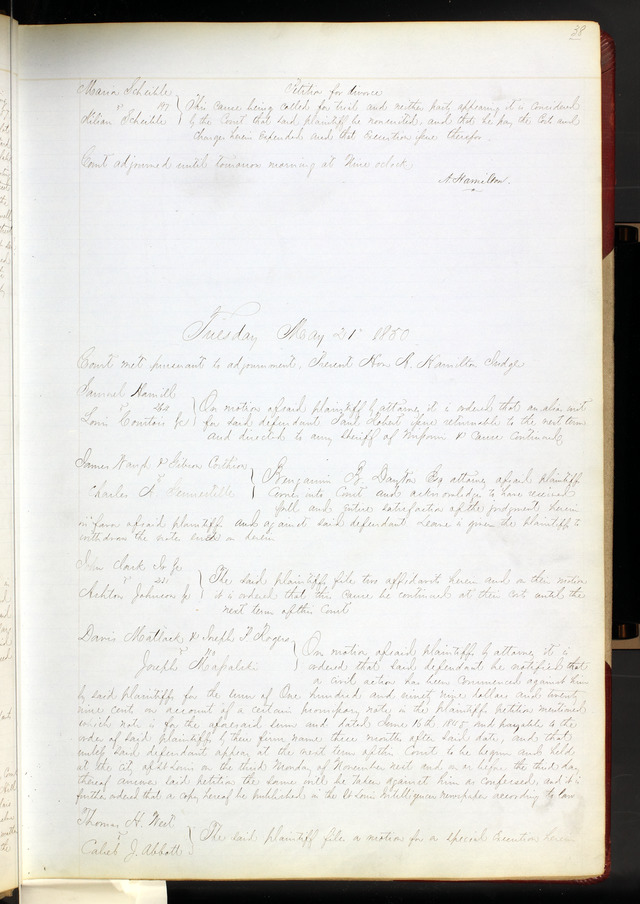 38
Maria Scheible Petition for divorce
vs 197 This cause being called for trial and neither party appearing it is considered
Kilian Scheible by the Court that said plaintiff be nonsuited, and that he pay the Cost and
Charges herein Expended and that Execution issue therefor.
Court adjourned until tomorrow morning at Nine oclock.
A. Hamilton.
Tuesday May 21st 1850
Court met pursuant to adjournment, Present Hon A. Hamilton Judge
Samuel Hamill
vs On motion of said plaintiff by attorney it is ordered that an alias writ
Louis Courtois Jr for said defendant Paul Robert issue returnable to the next term
and directed to any sheriff of Missouri & Cause Continued
James Waugh &
vs Benjamin B. Dayton Esq attorney of said plaintiff
Charles F. comes into Court and acknowledges to have received
full and entire satisfaction of the judgment herein
in favor of said plaintiff and against said defendant Leave is given the plaintiff to
withdraw the note sued on herein
John Clark Jr
vs The said plaintiff files two affidavit herein and on their motion
Ashton Johnson Jr it is ordered that this cause be continued at their cost until the
next term of this Court
Davis Matlack & Joseph F. Rogers
vs On motion of said plaintiffs by attorney it is
Joseph Kapalski ordered that said defendant be notified that
a civil action has been commenced against him
by said plaintiffs for the sum of One hundred and ninety nine dollars and twenty
nine cents on account of a certain promissory note in the plaintiffs petition mentioned
which note is for the aforesaid sum and dated June 16th 1845, and payable to the
order of said plaintiffs by their firm name three months after said date, and that
unless said defendant appear at the next term of this Court to be begun and held
at the City of St Louis on the third Monday of November next and on or before the third day
thereof answer said petition the same will be taken against him as confessed, and it is
further ordered that a copy hereof be published in the St Louis Intelligencer newspaper according to law
Thomas H. West
vs The said plaintiff files a motion for a special Execution herein
Caleb J. Abbott